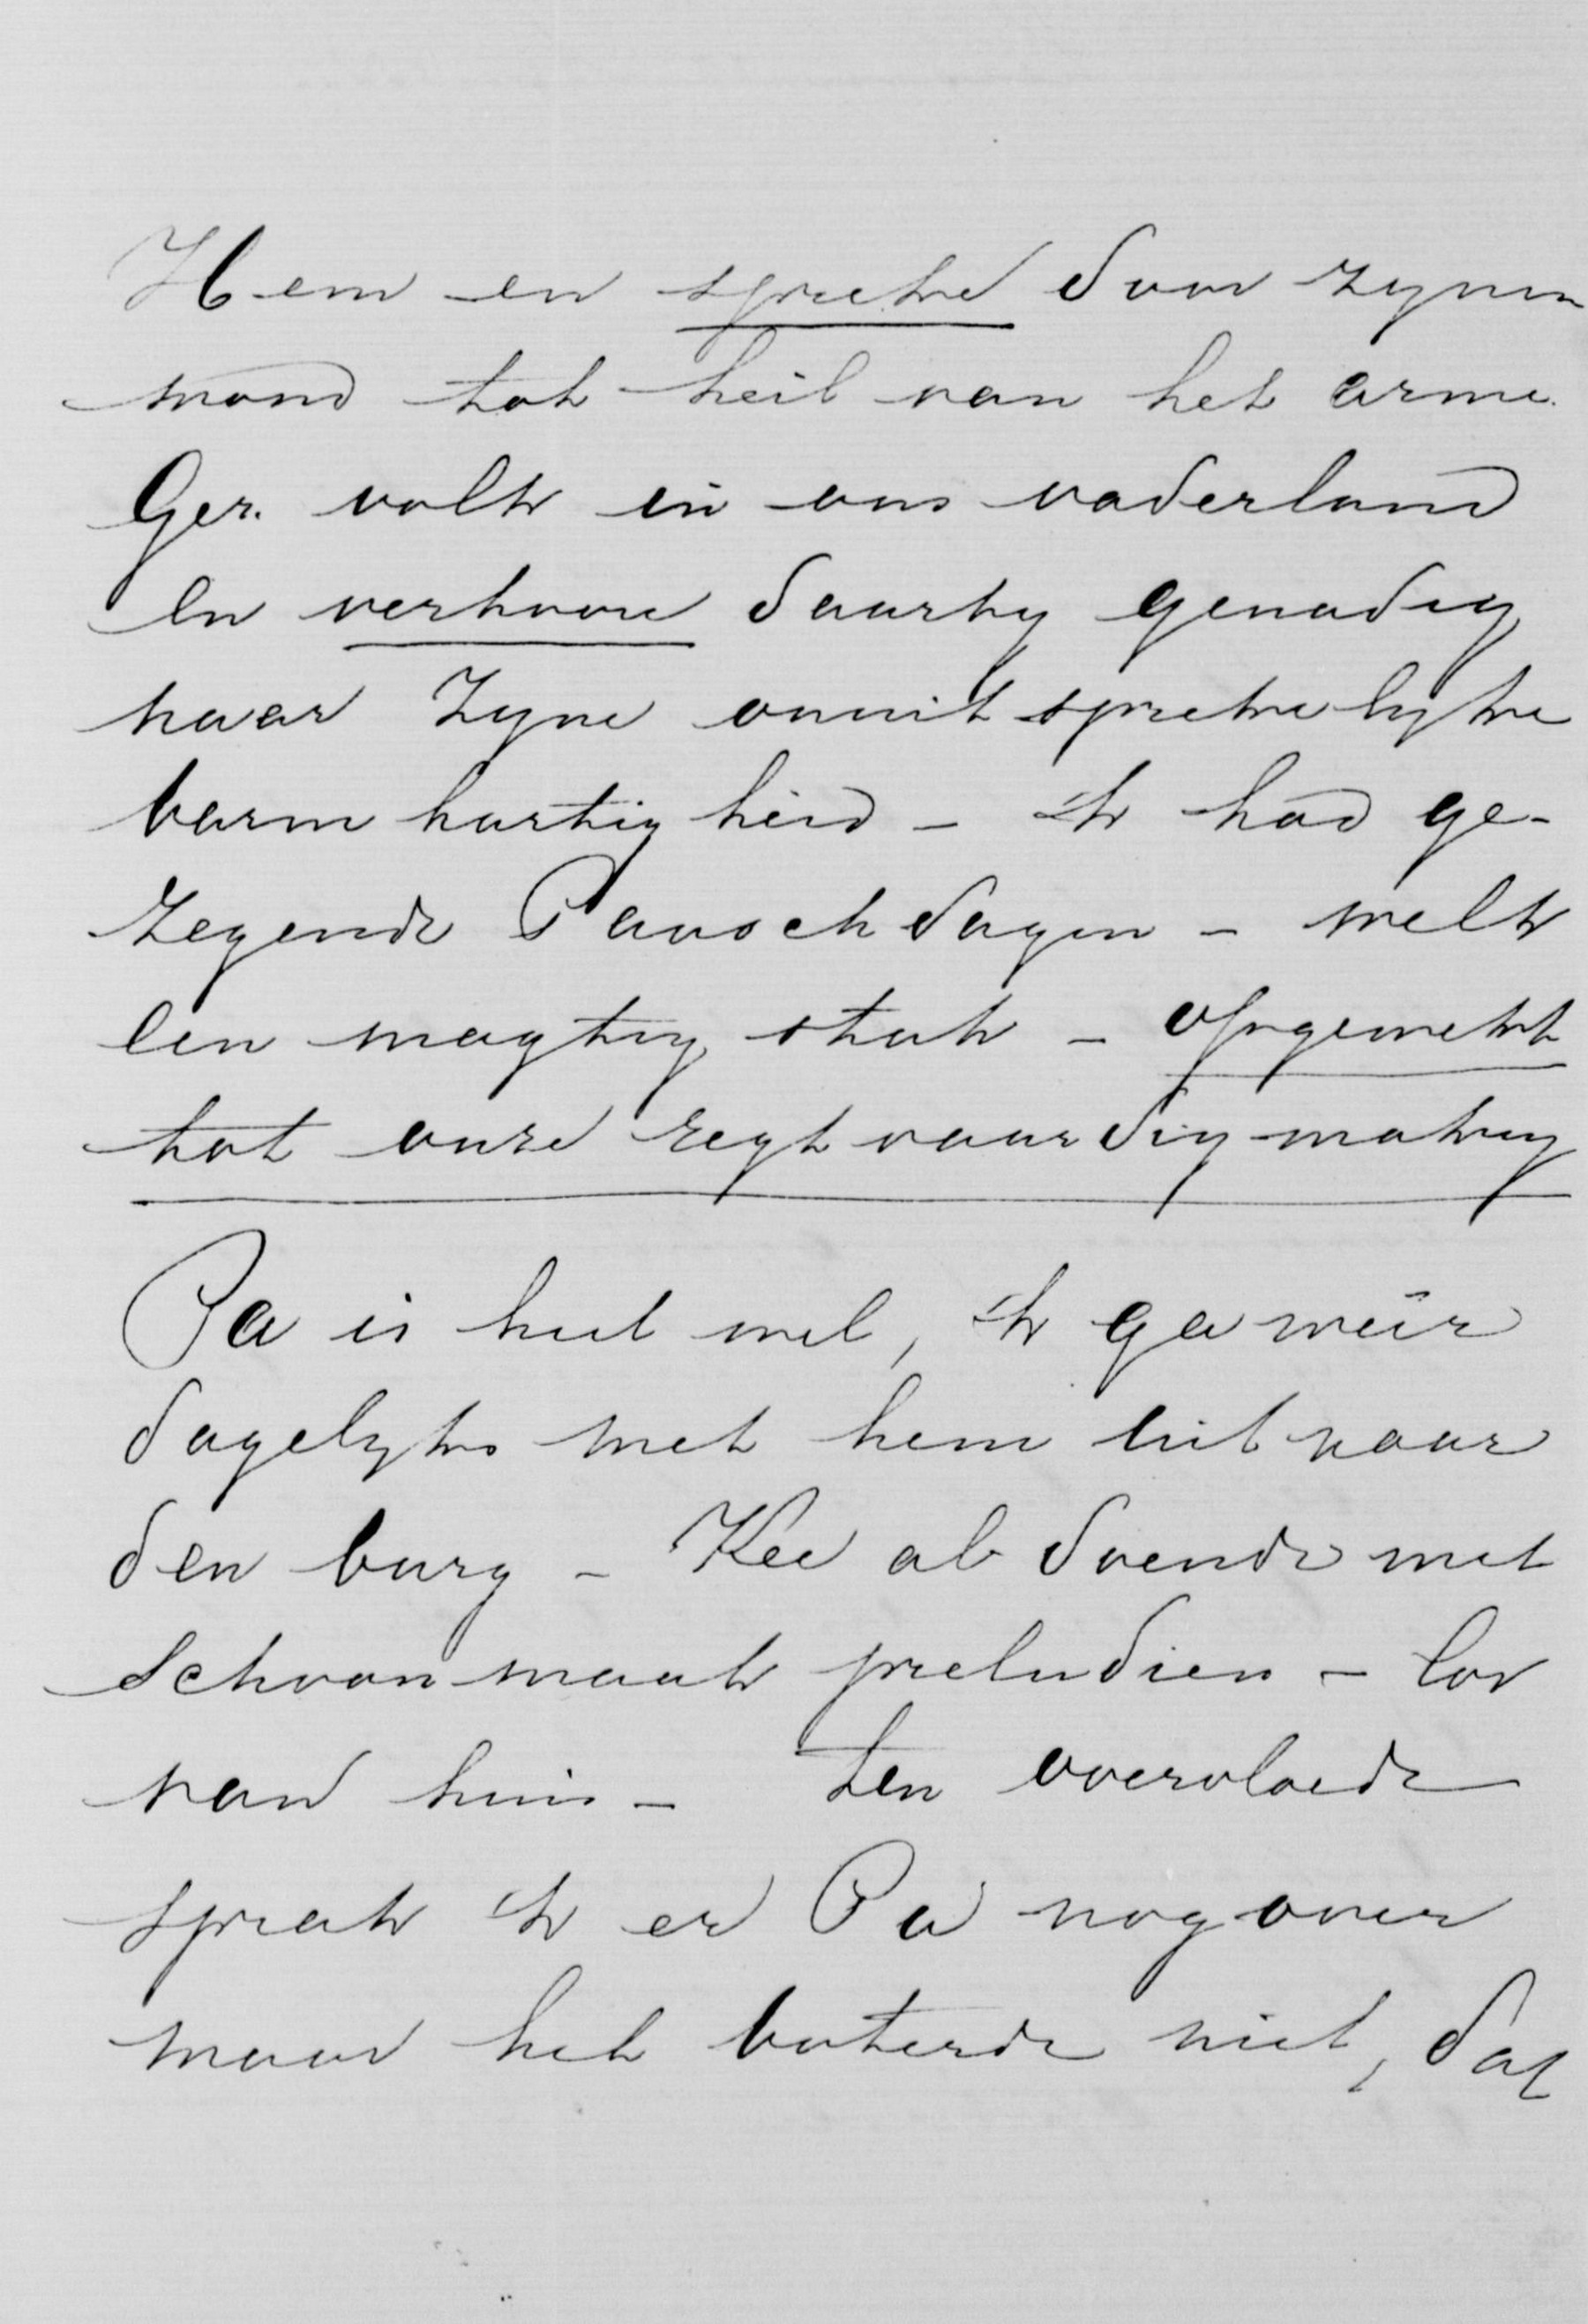 Hem en spreke door zynen
mond tot heil van het arme
Ger. volk in ons vaderland
en verhoore daarby genadig
naar Zyne onuitsprekelyke
barmhartigheid – ik had ge-
zegende Paaschdagen – welk
een magtig stuk – opgewekt
tot onze regtvaardigmaking
Pa is heel wel, ik ga weêr
dagelyks met hem uit naar
den burg – Kee al doende met
schoonmaak preludien –
van huis – ten overvloede
sprak ik er Pa nog over
maar het boterde niet, dat